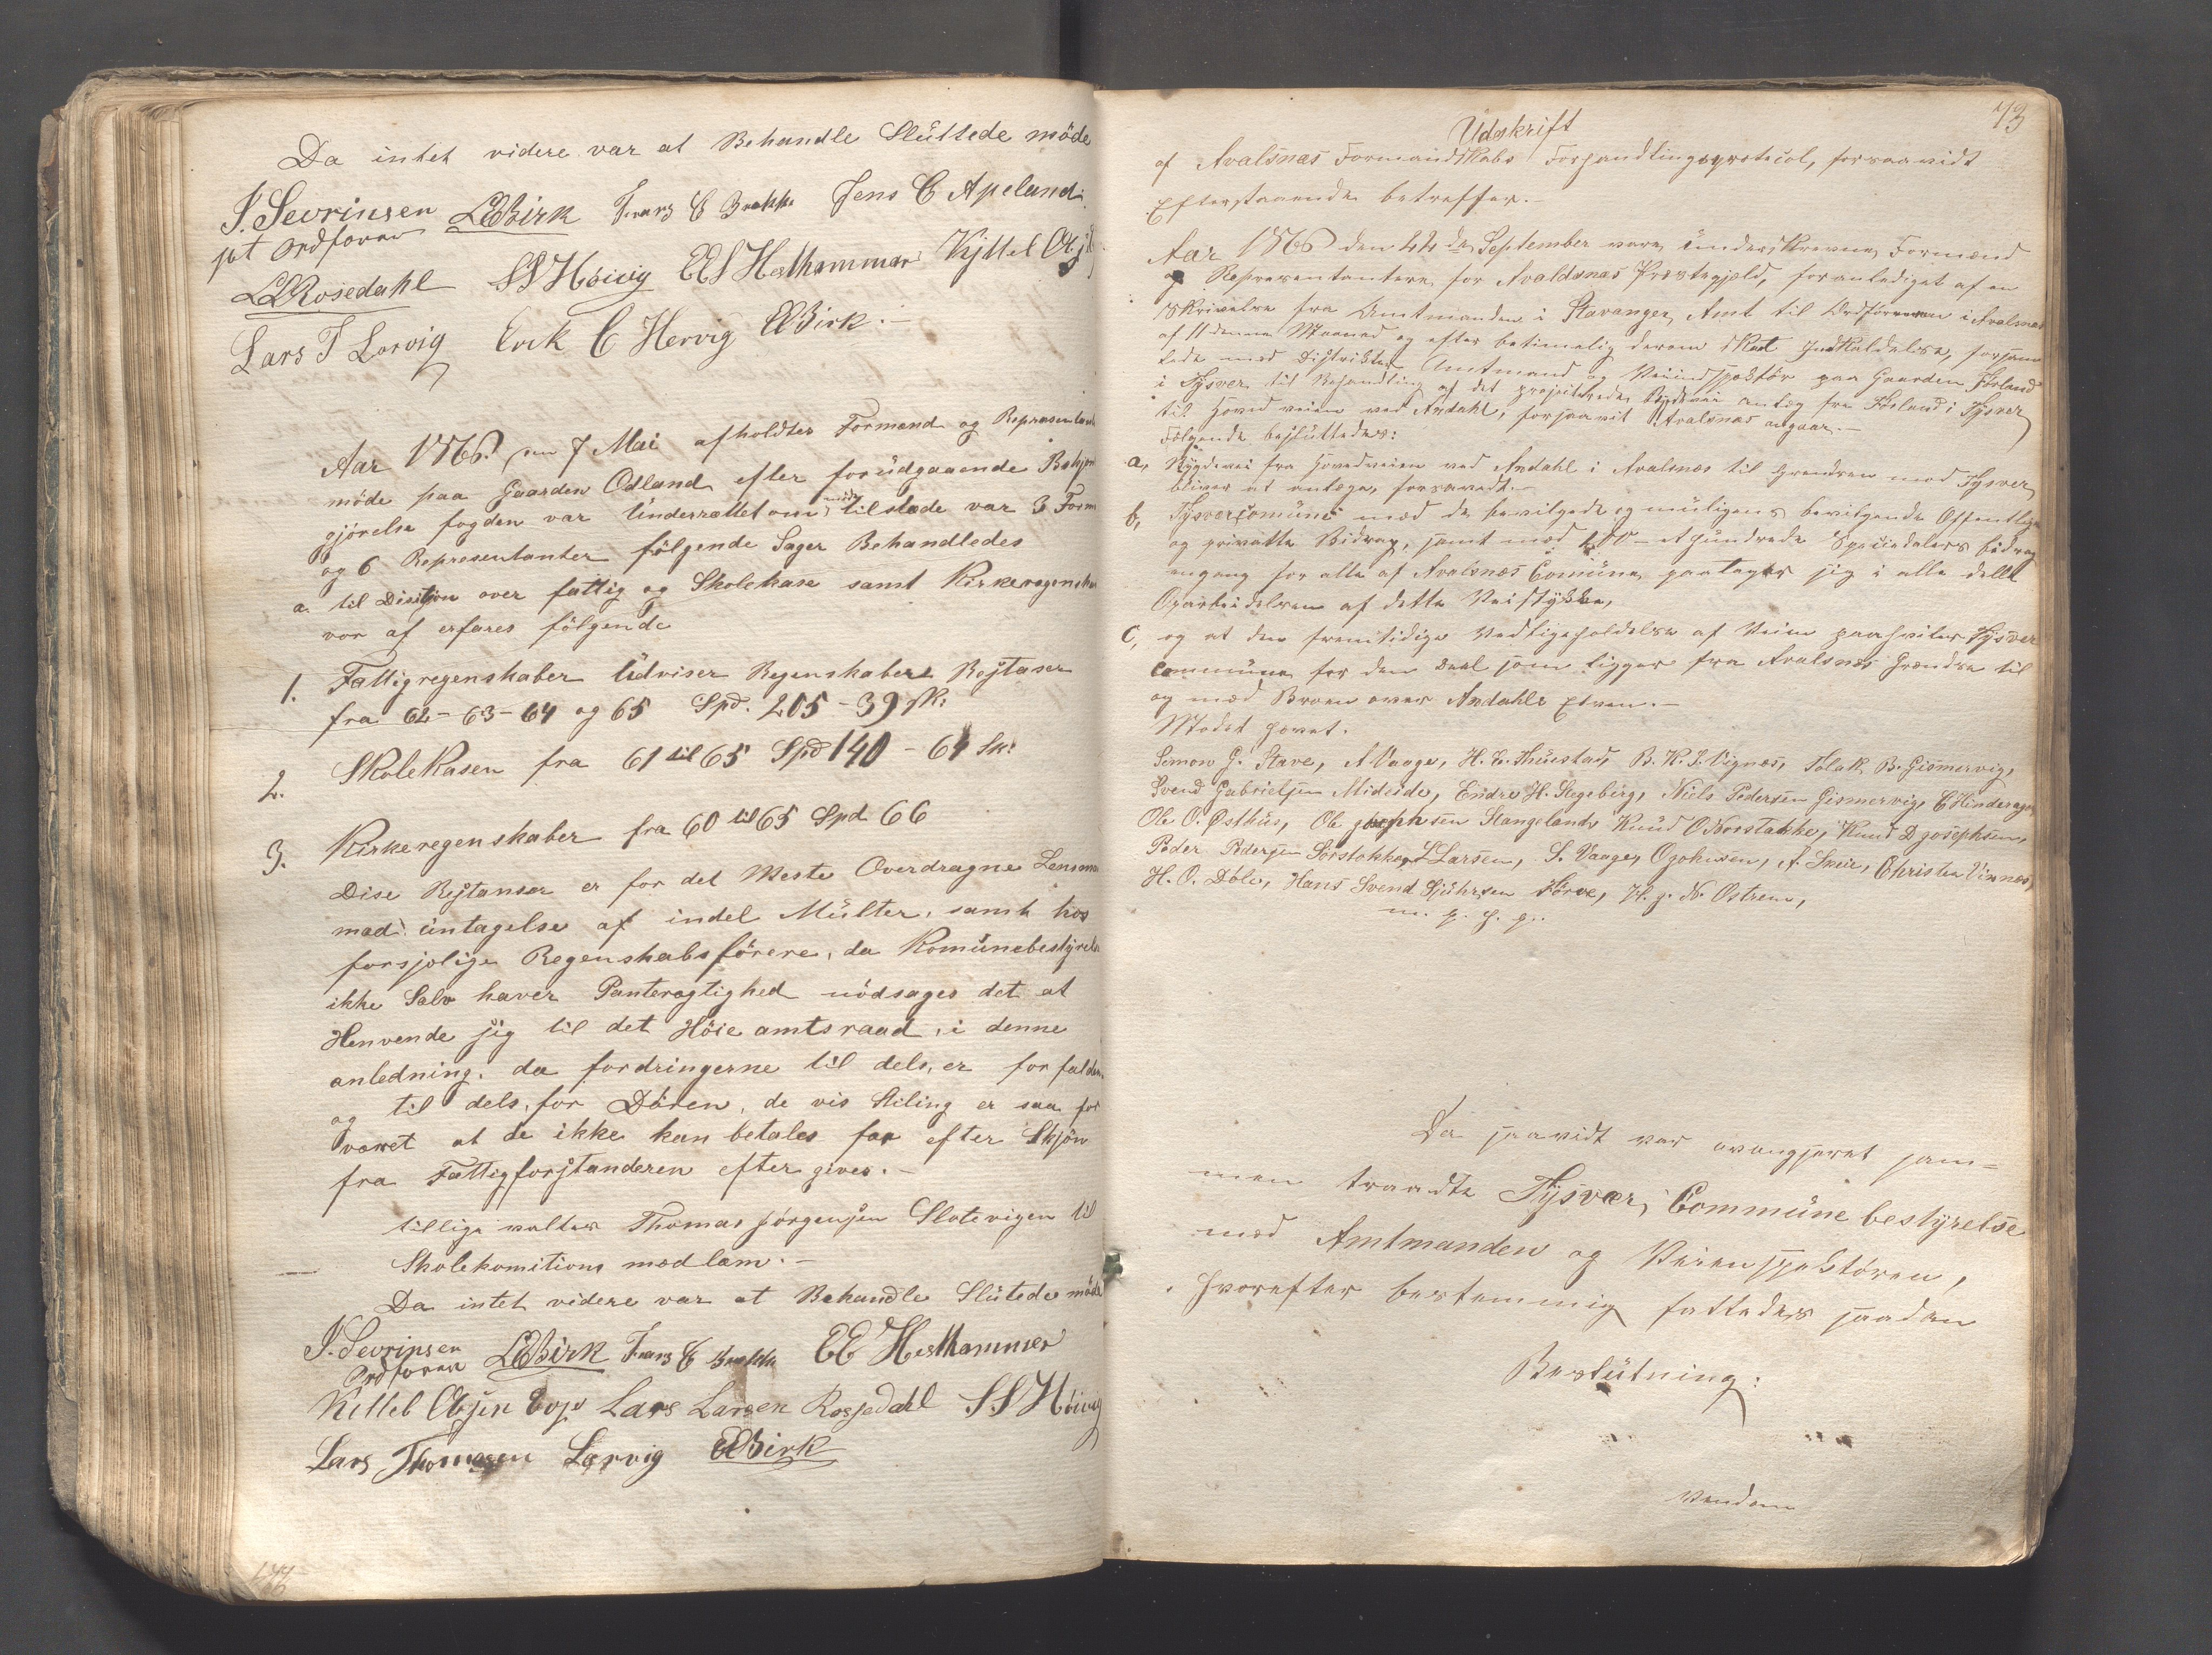 Da intet videre var at Behandle Sluttede möde
S. Sevrinsen LEBirk Frans E Brekke Jens C Apeland
pt ordförer
LLRosedahl SSHöivig EEHesthammer Kjttel
Lars T Lervig Erik C Hervig EBirk.
Aar 1866 den 7 Mai afholdtes Formend og Representant
möde paa Gaarden Odland efter forüdgaaende Bekjent
gjörelse fogden var ünderrettet om möde tilstæde var 3 Form
og 6 Representanter fölgende Sager Behandledes
a. til Disitjon over fattig og Skolekase samt Kirkeregenskab
vor af erfares fölgende
1. Fattigregenskaber üdviser Regenskabers Restaser
fra 62-63-64 og 65 Spd. 205-39 sk:
2. SkoleKasen fra 61 til 65 Spd 140-64 Sk:
3. Kirkeregenskaber fra 60 til 65 Spd. 66
Dise Restanser er for det Meste Overdragne Lensman
med üntagelse af indel Mülter, samt hos
forsjelige Regenskabsförere, da Komünebestyrels
ikke Selv haver Panteregtighed nödsages det at
Henvende sig til det Höie amtsraad, i denne
anledning. da fordringerne til dels, er forfalden
og til dels, for Döden, de vis Stiling er saa for
været at de ikke kan betales for efter Skjön
fra Fattigforstanderen efter gives.-
tillige valtes Thomas Jörgensen Slotevigen til
Skolekomitions medlem.-
Da intet videre var at Behandle Slütede möde
S. Sevrinsen LEBirk Frans E Brekke EE Hesthammer
Ordförer
Kittel Lars Larsen Rosjedahl SSHöivig
Lars Thomsen Lervig EBirk
73
Udskrift
af Avalsnæs Formandskabs Forhandlingsprotecol, forsaavidt
Efterstaaende betreffer.-
Aar 1866 den 22de September vare ünderskrevne Formænd
og Representantere for Avaldsnæs Præstegjeld, foranlediget af en
Skrivelse fra Amtmanden i Stavanger Amt til Ordföreren i Avalsnæs
af 11 denne Maaned og efter betimelig derom skeet Indkaldelse, forsam
lede med Distriktets Amtmand og Veiindspektör paa Gaarden Förland
i Tysver til Behandling af det projecterede Bygdevei anlæg fra Förland i Tysver
til Hovedveien ved Aredahl, forsaavit Avalsnæs angaar.-
Fölgende beslüttedes:
a, Bygdevei fra Hovedveien ved Aredahl i Avalsnæs til Grendsen mod Tysver
bliver at anlæge, forsavidt.-
b, Tysvær Comüne med de bevilgede og müligens bevilgende Offentlige
og privatte Bidrag, samt med 100- et hundrede Speciedalers bidrag
engang for alle af Avalsnæs Comüne paatager sig i alle delle
Oparbeidelsen af dette Veistykke,
c, og at den fremtidige Vedligeholdelse af Veien paahviler Tysver
Commüne for den deel som ligger fra Avalsnæs Grændse til
og med Broen over Aredahls Elven.-
Mödet hævet.
Simon G. Stave, A Vaage, H. E. Thüestad, B. K. S. Vignæs, Folak B. Gismervig,
Svend Gabrielsen Mideide, Endre H. Stegeberg, Niels Pedersen Gismervig, C Hinderager
Ole O. Østhüs, Ole Josephsen Stangeland, Knüd O Norstakke, Knüd D Josephsen,
Peder Pedersen Sörstokke, L Larsen, S. Vaage, O Johnsen, A. Snee, Christen Vinnæs,
H. O. Döle, Hans Svend Sjührsen Förve, H. J. N. Ostrem,
Da saavidt var avangjeret sam=
men traadte Tysver, Commüne bestyrelse
med Amtmanden og Veiinspektören,
hvorefter bestemmig fattedes saadan
Beslütning:
Vendom